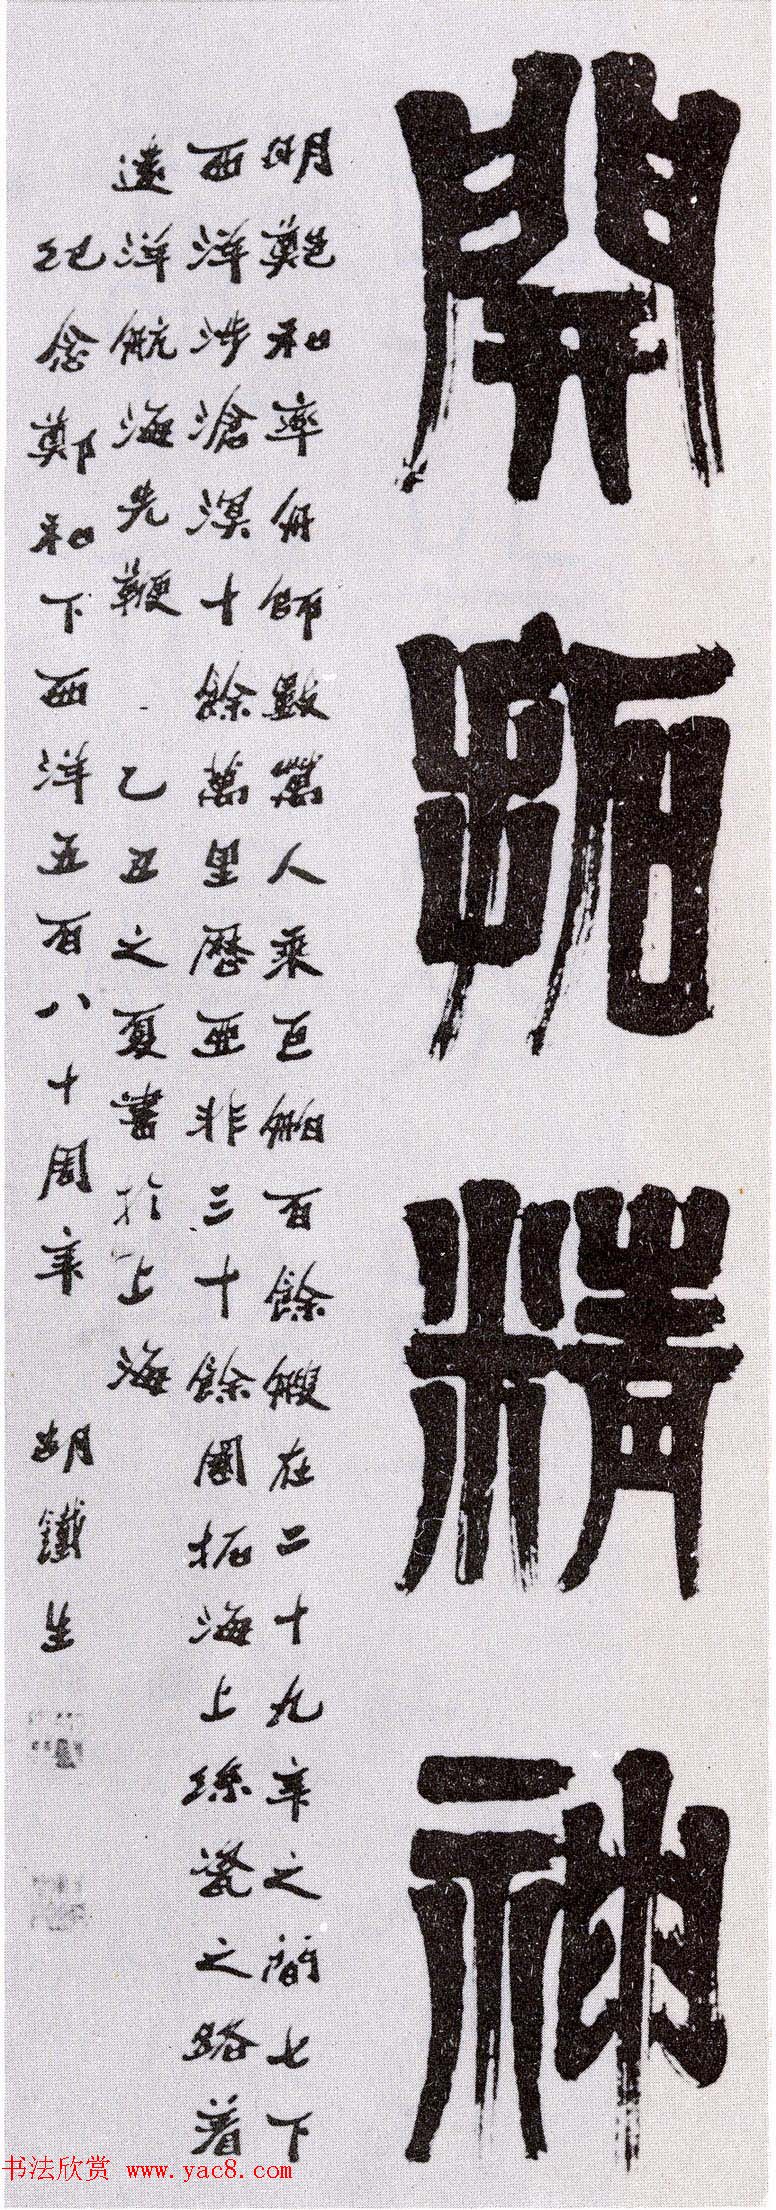 開拓精神
明鄭和率舟師數萬人乘巨舶百餘艘在二十九年之間七下
西洋涉滄溟十餘萬里歷亞非三十餘國拓海上絲瓷之路着
遠洋航海先鞭 乙丑之夏書於上海
紀念鄭和下西洋五百八十周年 胡鐵生
书法欣赏 www.yac8.com